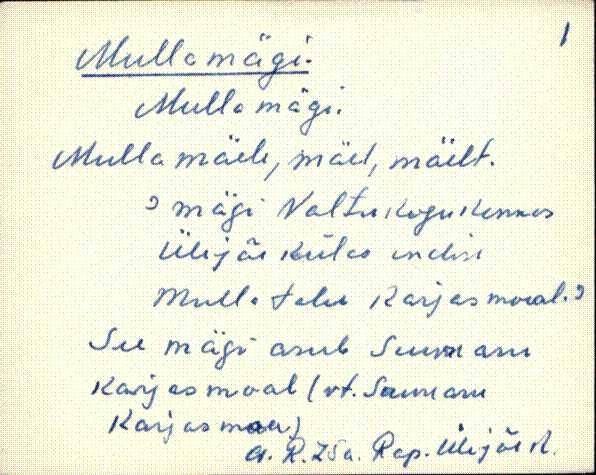 1
Mulla mägi.
Mulla mägi.
Mulla mäele, mäel, mäelt.
? mägi Valtu kogukonnas
Ülejõe külas endise
Mulla talu karjasmaal.?
See mägi asub
karjasmaal (vt.
karjasmaa)
A. R. 25a. Rap. Ülejõe k.